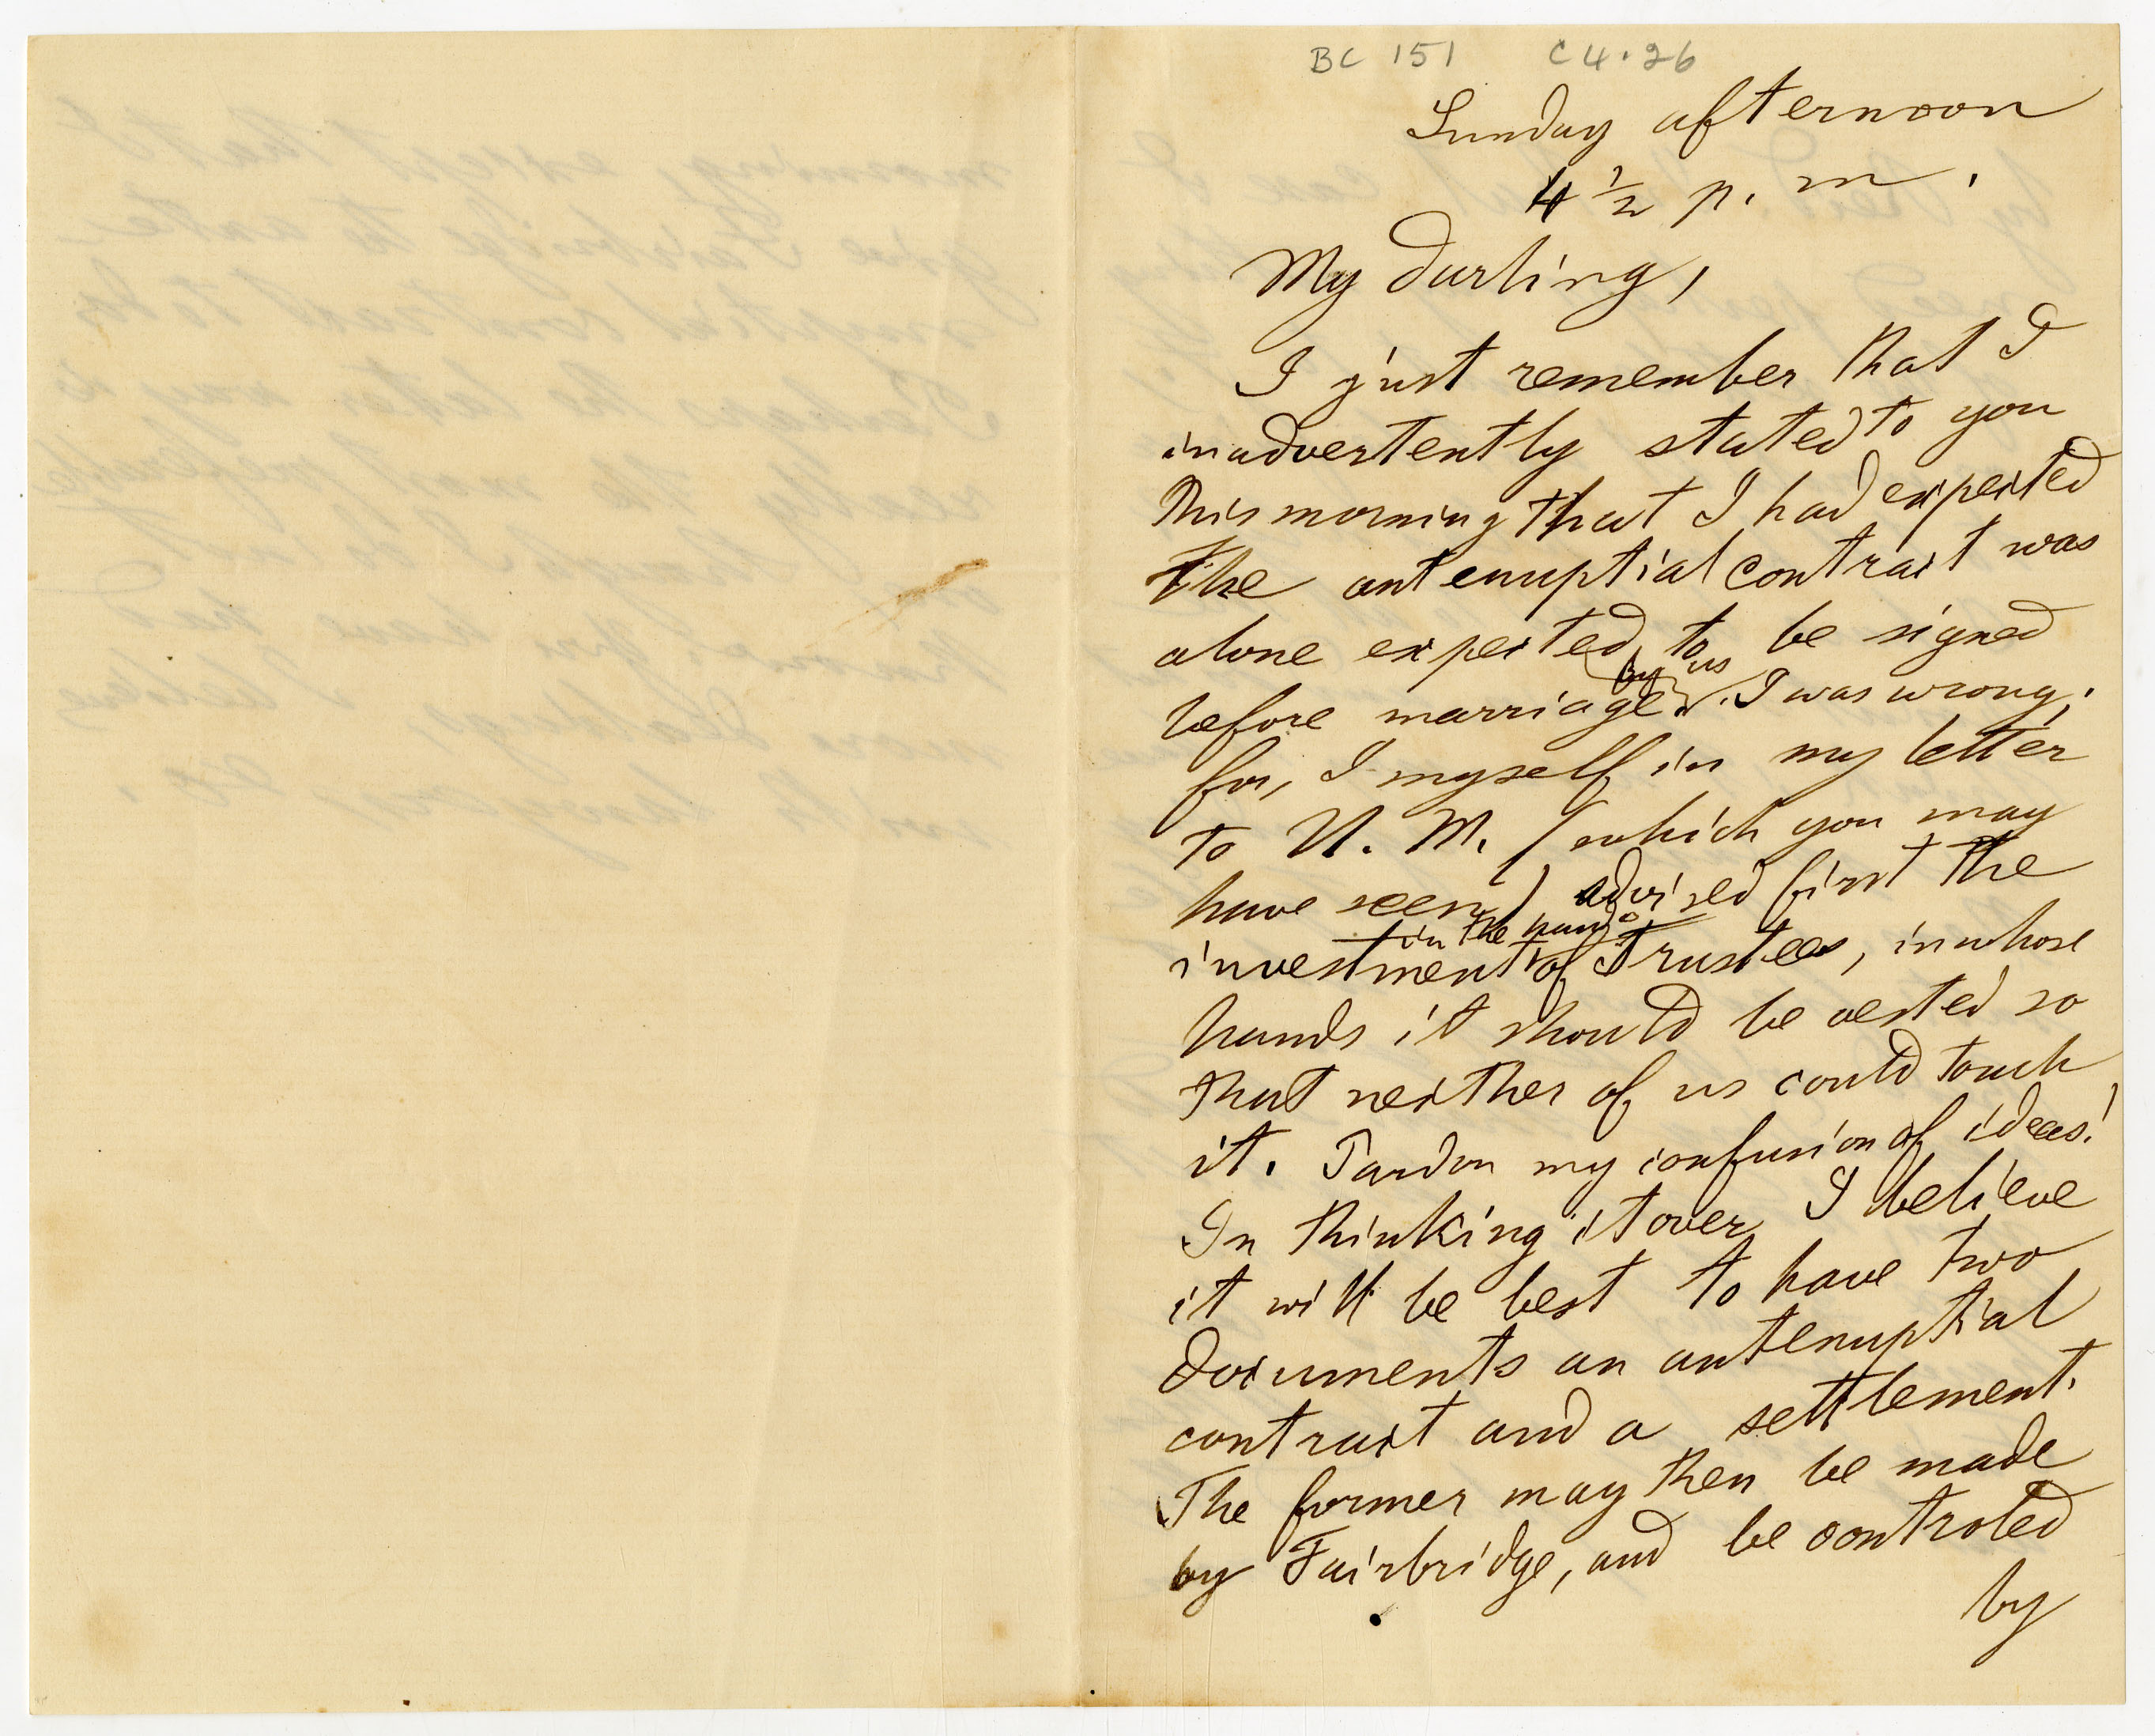 BC 151 C4.26
Sunday afternoon
4 1/2 p. m.
My darling,
I just remember that I
inadvertently stated to you
this morning that I had expected
the antenuptial contract was
alone expected to be signed
by us
before marriage. I was wrong,
for, I myself in my letter
to U. M. (which you may
have seen) advised first the
in the hands
investment of Trustees, in whose
hands it should be vested so
that neither of us could touch
it. Pardon my confusion of ideas!
In thinking it over, I believe
it will be best to have two
documents an antenuptial
contract and a settlement.
The former may then be made
by Fairbridge, and be controled
by